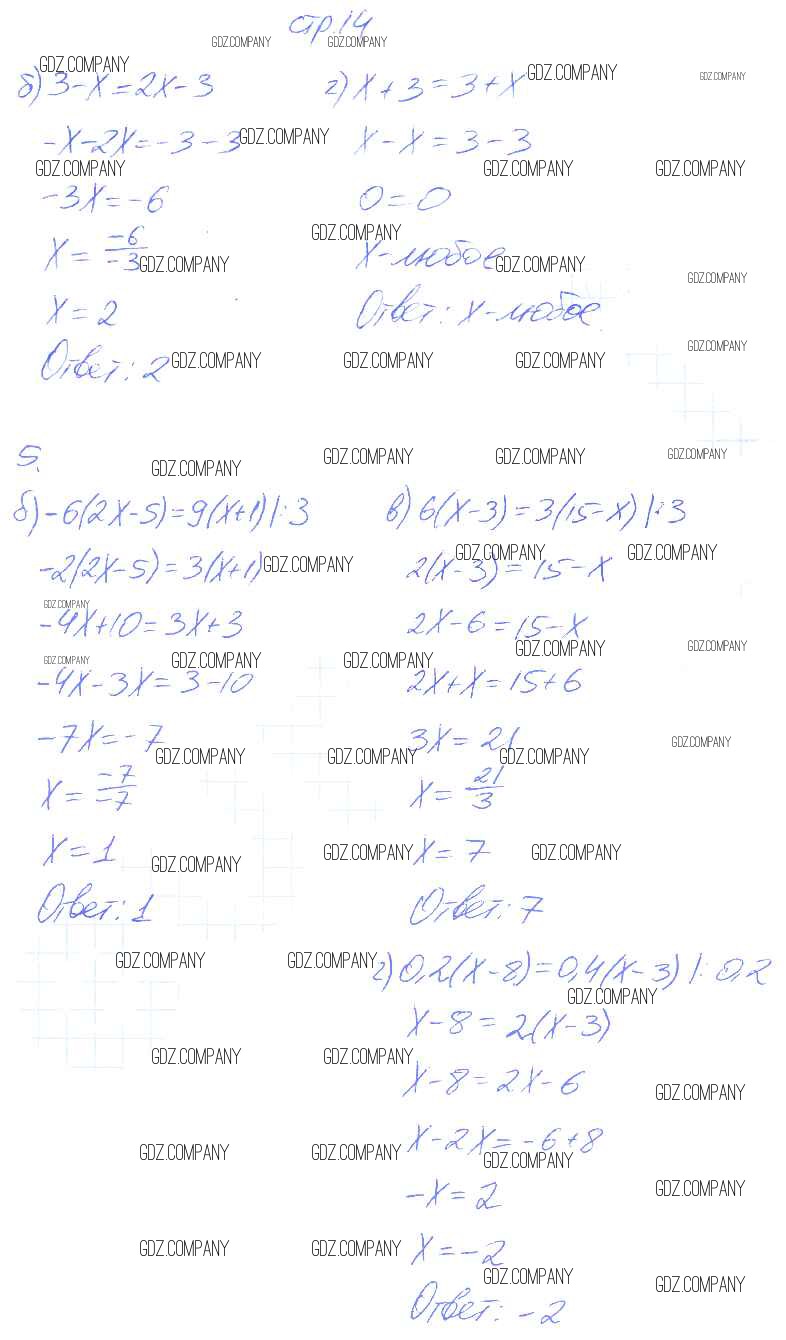 стр. 14
GDZ.COMPANY GDZ.COMPANY
GDZ.COMPANY GDZ.COMPANY GDZ.COMPANY
б) 3-x=2x-3
-x-2x=-3-3 GDZ.COMPANY
GDZ.COMPANY
-3x=-6
x=-6/-3 GDZ.COMPANY
x=2
Ответ: 2 GDZ.COMPANY
г) x+3=3+x
x-x=3-3
GDZ.COMPANY GDZ.COMPANY
0=0
GDZ.COMPANY
x-любое GDZ.COMPANY
GDZ.COMPANY
Ответ: x-любое
GDZ.COMPANY
GDZ.COMPANY GDZ.COMPANY
5.
GDZ.COMPANY GDZ.COMPANY GDZ.COMPANY GDZ.COMPANY
б) -6(2x-5)=9(x+1) |:3
-2(2x-5)=3(x+1) GDZ.COMPANY
GDZ.COMPANY
-4x+10=3x+3
GDZ.COMPANY GDZ.COMPANY GDZ.COMPANY
-4x-3x=3-10
-7x=-7
GDZ.COMPANY GDZ.COMPANY
x=-7/-7
x=1
GDZ.COMPANY GDZ.COMPANY
Ответ: 1
в) 6(x-3)=3(15-x) |:3
GDZ.COMPANY GDZ.COMPANY
2(x-3)=15-x
2x-6=15-x
GDZ.COMPANY GDZ.COMPANY
2x+x=15+6
3x=21
GDZ.COMPANY GDZ.COMPANY
x=21/3
x=7 GDZ.COMPANY
Ответ: 7
GDZ.COMPANY GDZ.COMPANY
г) 0,2(x-8)=0,4(x-3) |:0,2
GDZ.COMPANY
x-8=2(x-3)
GDZ.COMPANY GDZ.COMPANY
x-8=2x-6
GDZ.COMPANY
x-2x=-6+8
GDZ.COMPANY GDZ.COMPANY GDZ.COMPANY
-x=2 GDZ.COMPANY
x=-2
GDZ.COMPANY GDZ.COMPANY
GDZ.COMPANY GDZ.COMPANY
Ответ: -2